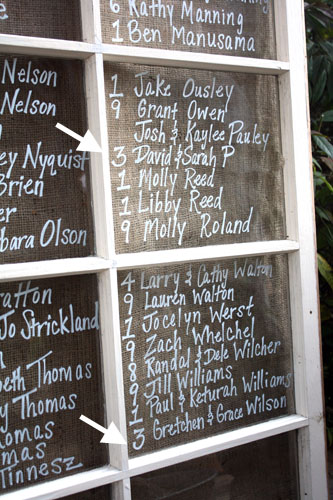 6 Kathy Manning
1 Ben Manusama
Nelson
Nelson
ey Nyquist
Brien
er
bara Olson
1 Jake Ousley
9 Grant Owen
Josh & Kaylee Pauley
3 David & Sarah P
1 Molly Reed
1 Libby Reed
9 Molly Roland
ratton
Jo Strickland
homas
beth Thomas
y Thomas
omas
mas
Tinnesz
4 Larry & Cathy Walton
9 Lauren Walton
1 Jocelyn Werst
9 Zach Whelchel
8 Randal & Dele Wilcher
9 Jill Williams
1 Paul & Keturah Williams
3 Gretchen & Grace Wilson